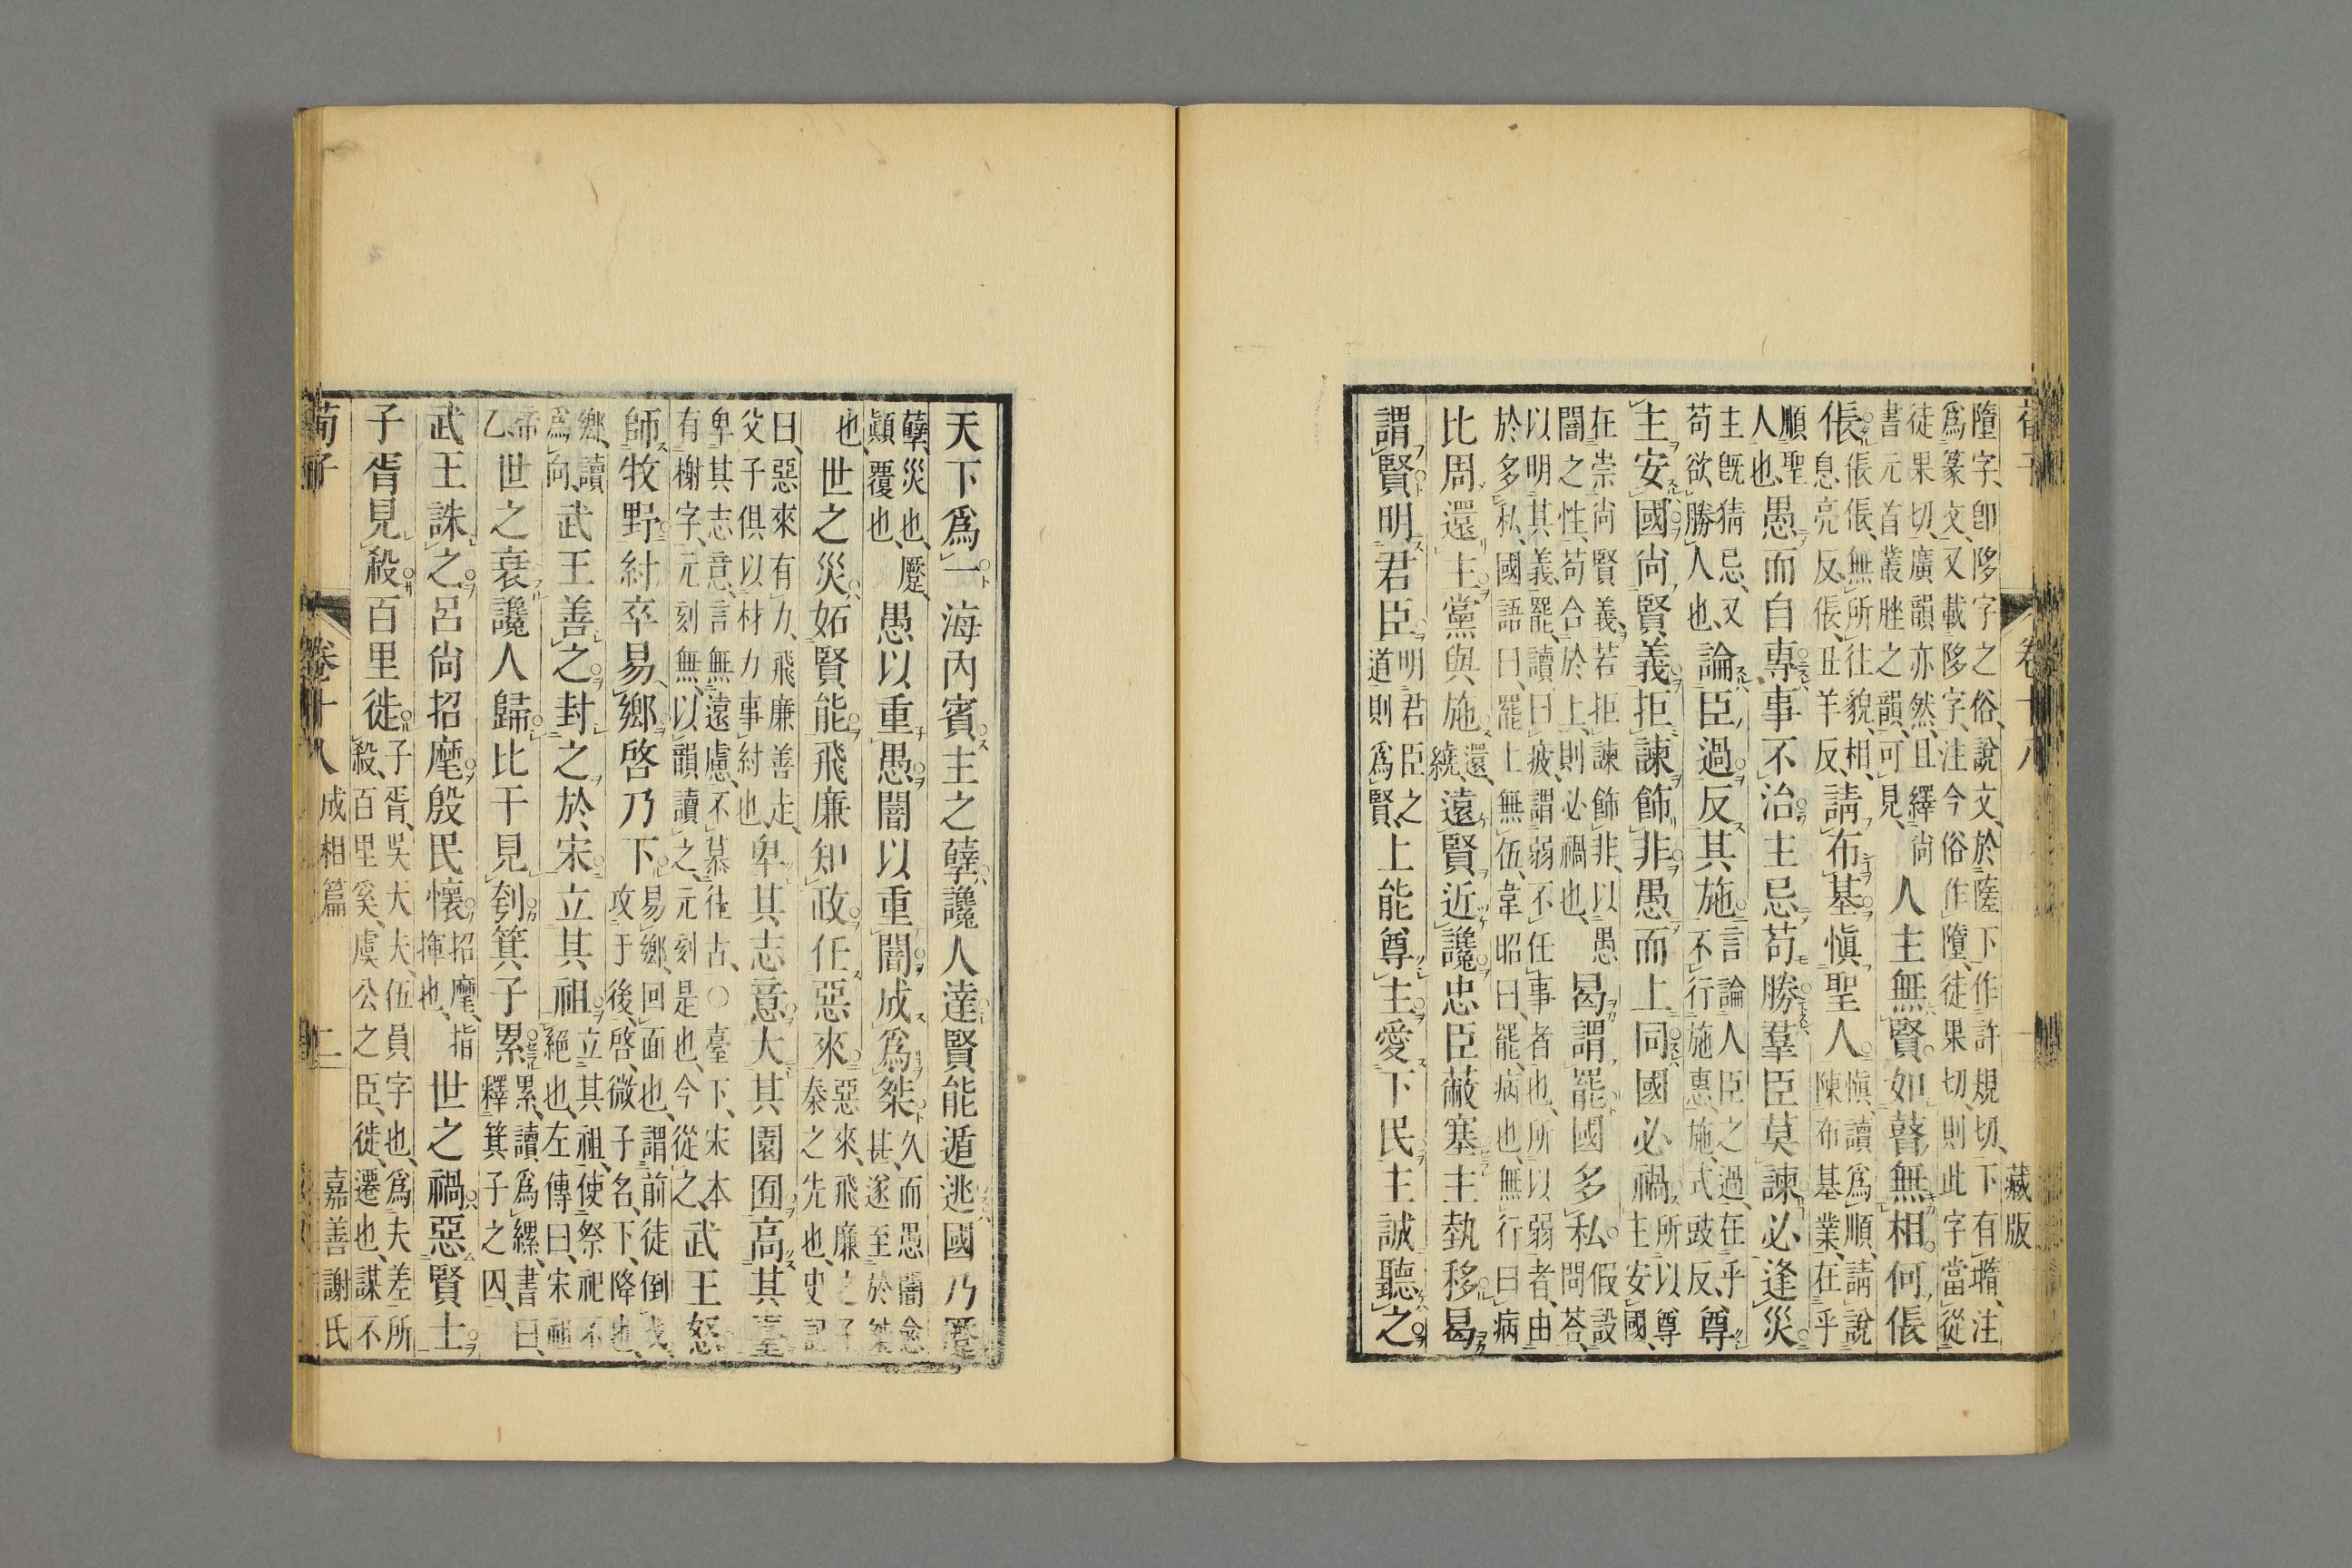 荀子　卷十八　一　藏版
墮字卽陊字之俗說文於隓下作許規切下有墯注
爲篆文又載陊字注今俗作墮徒果切則此字當從
徒果切廣韻亦然且繹尚書元首叢脞之韻可見人主無賢如瞽無相何倀
倀倀倀無所往貌相息亮反倀丑羊反請布基愼聖人愼讀爲順請說陳布基業在乎
順聖人也愚而自專事不治主忌苟勝羣臣莫諫必逢災
主旣猜忌又苟欲勝人也論臣過反其施言論人臣之過在乎不行施惠施式豉反尊
主安國尚賢義拒諫飾非愚而上同國必禍所以尊主安國
在崇尚賢義若拒諫飾非以愚闇之性苟合於上則必禍也曷謂罷國多私假設問荅
以明其義罷讀曰疲謂弱不任事者也所以弱者由
於多私國語曰罷士無伍韋昭曰罷病也無行曰病
比周還主黨與施還繞遠賢近讒忠臣蔽塞主埶移曷
謂賢明君臣明君臣之道則爲賢上能尊主愛下民主誠聽之
天下爲一海內賓主之孽讒人達賢能遁逃國乃蹷
孽災也蹷顚覆也愚以重愚闇以重闇成爲桀久而愚闇愈甚遂至於桀
也世之災妬賢能飛廉知政任惡來惡來飛廉之子秦之先也史記
曰惡來有力飛廉善走父子俱以材力事紂也卑其志意大其園囿高其臺
卑其志意言無遠慮不慕往古〇臺下宋本有榭字元刻無以韻讀之元刻是也今從之武王怒
師牧野紂卒易鄉啓乃下易鄉回面也謂前徒倒戈攻于後啓微子名下降也
鄉讀爲向武王善之封之於宋立其祖立其祖使祭祀不絕也左傳曰宋祖
帝乙世之衰讒人歸比干見刳箕子累累讀爲縲書曰釋箕子之囚
武王誅之呂尙招麾殷民懷招麾指揮也世之禍惡賢士
子胥見殺百里徙子胥吳大夫伍員字也爲夫差所殺百里奚虞公之臣徙遷也謀不
荀子　卷十八　成相篇　二　嘉善謝氏